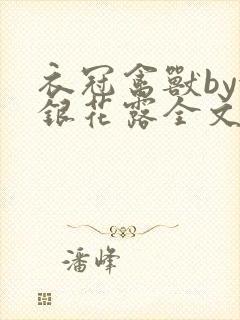 衣冠禽獸by
銀花露全文
潘峰